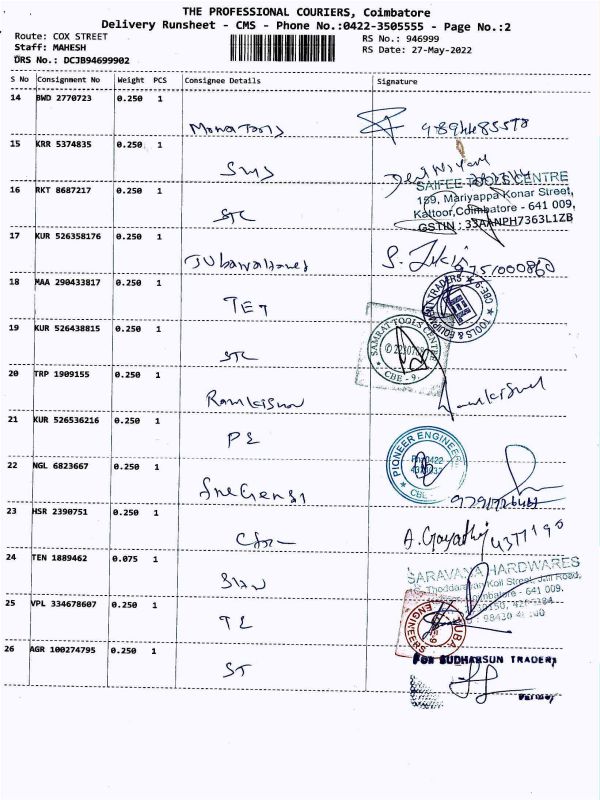 THE PROFESSIONAL COURIERS, Coimbatore
Delivery Runsheet - CMS - Phone No.:0422-3505555 - Page No.:2
Route: COX STREET
RS No.: 946999
Staff: MAHESH
RS Date: 27-May-2022
DRS No.: DCJB94699902
S No Consignment No Weight PCS Consignee Details Signature
14 BWD 2770723 0.250 1
9894485578
15 KRR 5374835 0.250 1
SMS
SAIFEE TOOLS CENTRE
16 RKT 8687217 0.250 1
159, Mariyappa Konar Street,
Kattoor, Coimbatore - 641 009,
STC
GSTIN : 33AANPH7363L1ZB
17 KUR 526358176 0.250 1
9751000860
18 MAA 290433817 0.250 1
TET
TOOLS & EQUIPMENT TRADERS CBE-9
19 KUR 526438815 0.250 1
SAMRAT TOOLS CENTRE
CBE - 9.
STC
20 TRP 1909155 0.250 1
Ramkishan
21 KUR 526536216 0.250 1
PE
PIONEER ENGINEER
22 NGL 6823667 0.250 1
23 HSR 2390751 0.250 1
A. Gayathri 4377190
24 TEN 1889462 0.075 1
SARAVANA HARDWARES
Koil Street, Jail Road,
Coimbatore - 641 009.
25 VPL 334678607 0.250 1
TE
ENGINEERS
26 AGR 100274795 0.250 1
FOR SUDHARSUN TRADERS
ST